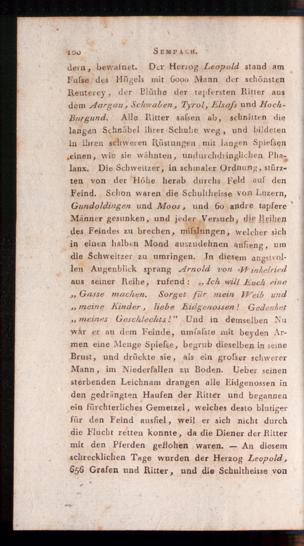 100 SEMPACH.
dern, bewafnet. Der Herzog Leopold stand am
Fuſse des Hügels mit 6000 Mann der schönsten
Reuterey, der Blüthe der tapfersten Ritter aus
dem Aargau, Schwaben, Tyrol, Elsaſs und Hoch-
Burgund. Alle Ritter saſsen ab, schnitten die
langen Schnäbel ihrer Schuhe weg, und bildeten
in ihren schweren Rüstungen mit langen Spieſsen
einen, wie sie wähnten, undurchdringlichen Pha-
lanx. Die Schweitzer, in schmaler Ordnung, stürz-
ten von der Höhe herab durchs Feld auf den
Feind. Schon waren die Schultheisse von Luzern,
Gundoldingen und Moos, und 60 andre tapfere
Männer gesunken, und jeder Versuch, die Reihen
des Feindes zu brechen, miſslungen, welcher sich
in einen halben Mond auszudehnen anfieng, um
die Schweitzer zu umringen. In diesem angstvol-
len Augenblick sprang Arnold von Winkelried
aus seiner Reihe, rufend: „Ich will Euch eine
„Gasse machen. Sorget für mein Weib und
„meine Kinder, liebe Eidgenossen! Gedenket
„meines Geschlechts!” Und in demselben Nu
war er an dem Feinde, umfaſste mit beyden Ar-
men eine Menge Spieſse, begrub dieselben in seine
Brust, und drückte sie, als ein groſser schwerer
Mann, im Niederfallen zu Boden. Ueber seinen
sterbenden Leichnam drangen alle Eidgenossen in
den gedrängten Haufen der Ritter und begannen
ein fürchterliches Gemetzel, welches desto blutiger
für den Feind ausfiel, weil er sich nicht durch
die Flucht retten konnte, da die Diener der Ritter
mit den Pferden geflohen waren. — An diesem
schrecklichen Tage wurden der Herzog Leopold,
656 Grafen und Ritter, und die Schultheisse von